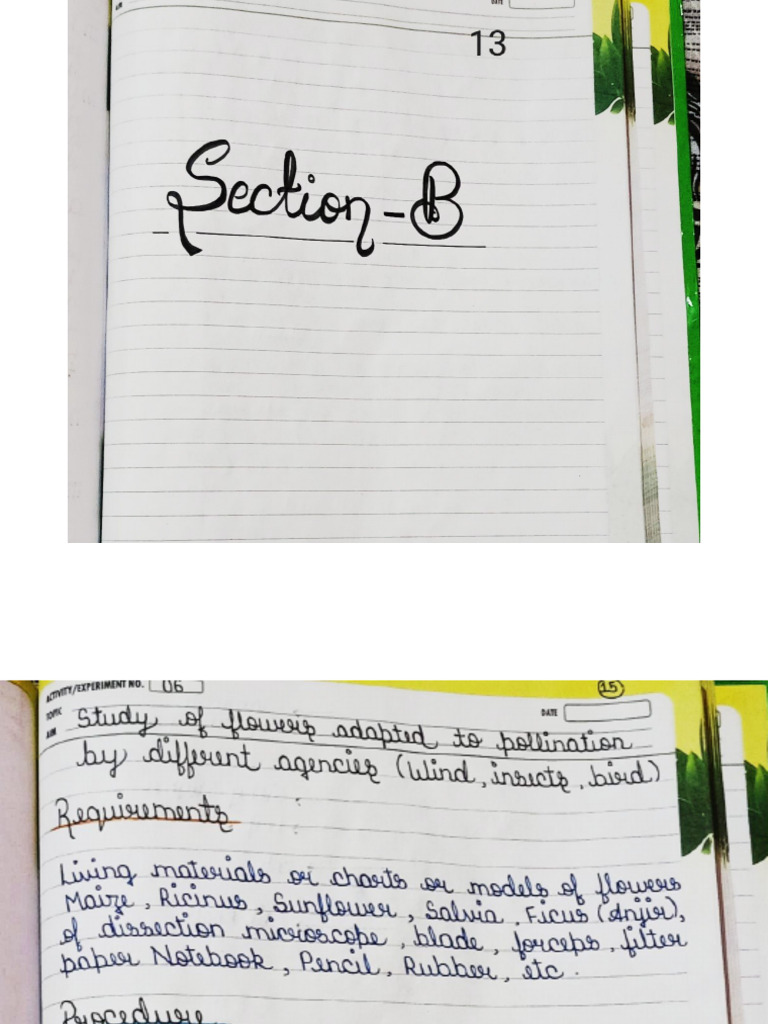 DATE
AIM
13
Section-B
ACTIVITY/EXPERIMENT NO. 06
15
TOPIC
DATE
Study of flowers adapted to pollination
AIM
by different agencies (Wind, insects, bird)
Requirements
Living materials or charts or models of flowers
Maize, Ricinus, Sunflower, Salvia, Ficus (Anjir),
of dissection microscope, blade, forceps, filter
paper Notebook, Pencil, Rubber, etc.
Procedure